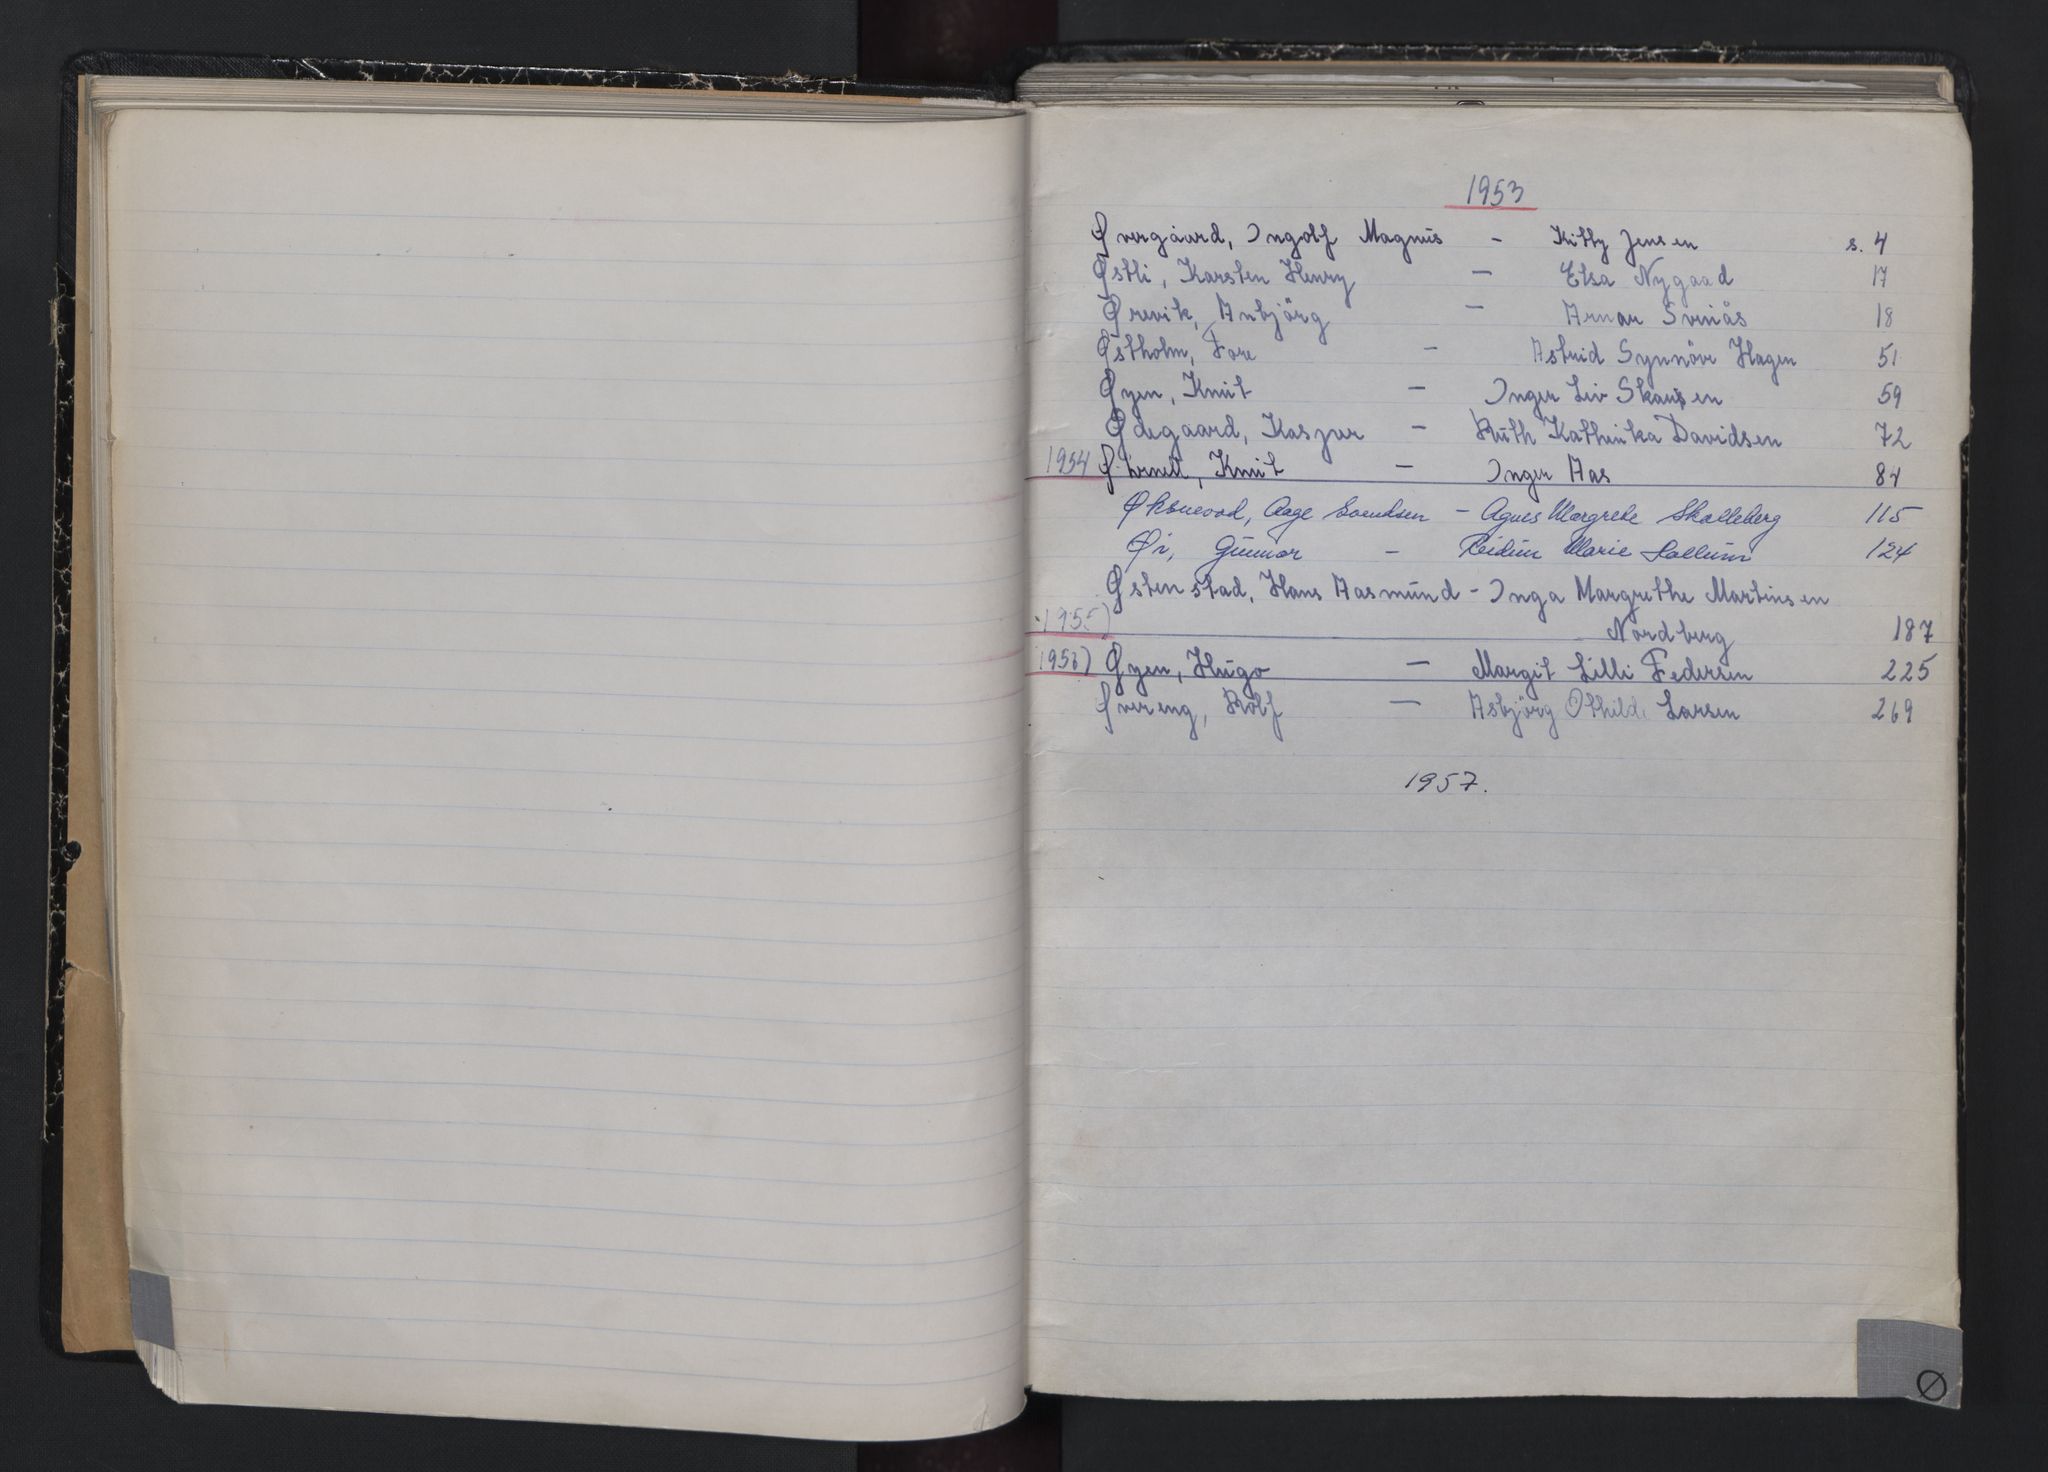 1953
Øvergaard, Ingolf Magnus - Kitty Jensen s. 4
Østli, Karsten Henry - Elsa Nygaad 17
Ørevik, Anbjörg - Arnar Svinås 18
Østholm, Tore - Astrid Synnöve Hagen 51
Øyen, Knut - Inger Liv Skausen 59
Ødegaard, Kaspar - Ruth Kathinka Davidsen 72
1954 Knut - Inger Aas 84
Øksnevad, Aage Svendsen - Agnes Margrete Skolleberg 115
Øi, Gunnar - Reidun Marie Hollum 124
Østenstad, Hans Aasmund - Inga Margrethe Martinsen
1955) Nordberg 187
1956) Øyen, Hugo - Margit Lilli Pedersen 225
Øvereng, Rolf - Asbjörg Othild. Larsen 269
1957.
Ø